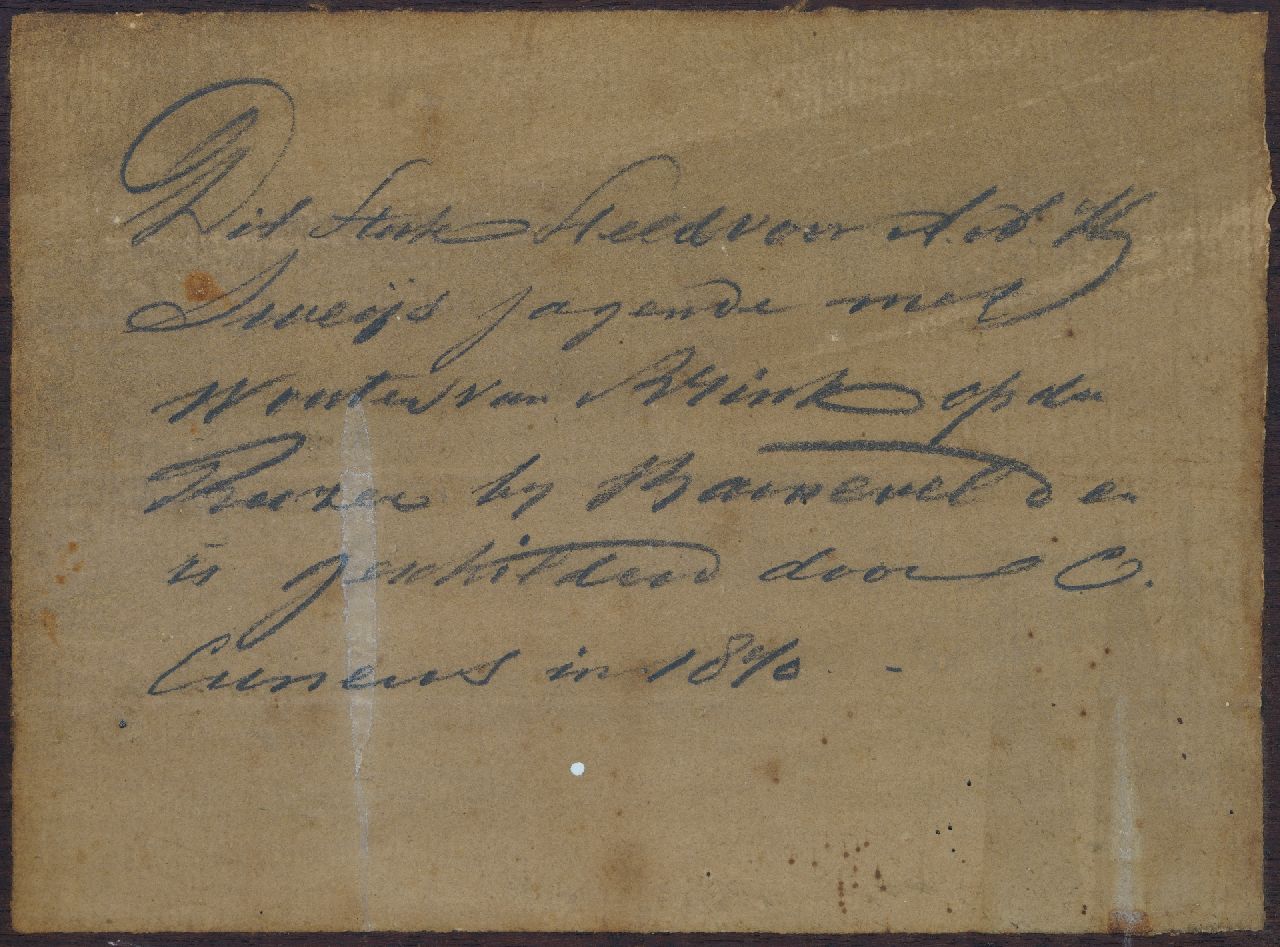 Dit Stuk Steld voor A. d. H
Sweijs jagende met
Wouter van Blink op de
by Barneveld en
is geschilderd door C.
Cuneus in 1840. -